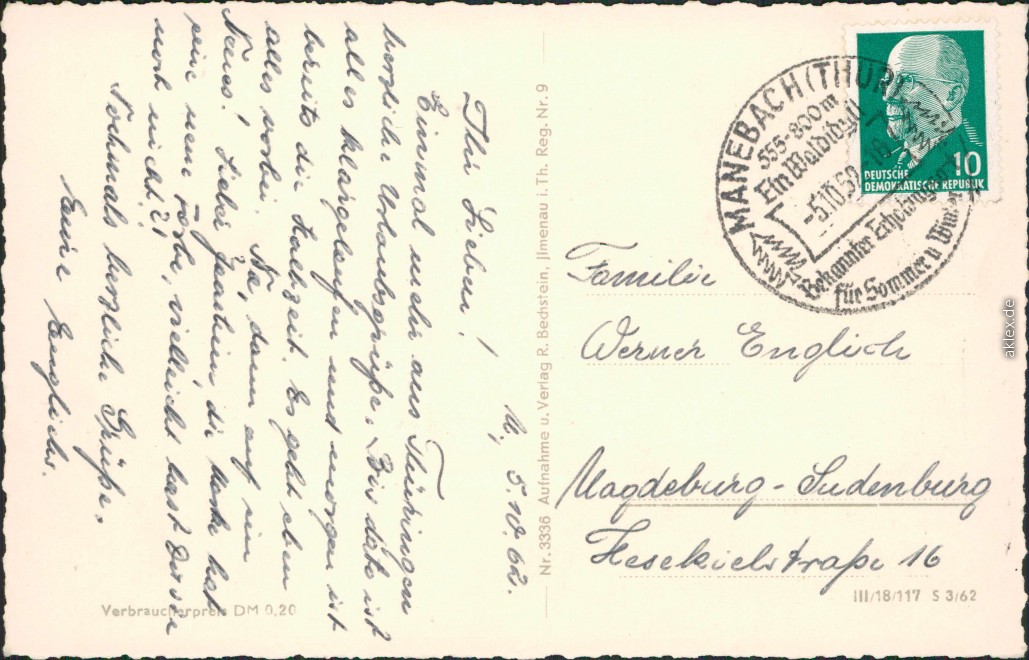 M, 5.10.62.
Ihr Lieben!
Einmal mehr aus Thüringen
herzliche Urlaubsgrüße. Bis dato ist
alles klargelaufen und morgen ist
bereits die Hochzeit. Es geht eben
alles vorbei. Na, dann auf ein
Neues! Lieber Joachim, die Woche hat
eine neue Farbe, vielleicht hast Du sie
noch nicht?!
Nochmals herzliche Grüße,
Eure Englichs.
Nr. 3336 Aufnahme u. Verlag R. Bechstein, Jlmenau i. Th. Reg. Nr. 9
Verbraucherpreis DM 0,20
MANEBACH (THÜR)
555-800m
Ein Waldidyll
-5.10.62-16
Bekannter Erholungsort
für Sommer u Winter
10
DEUTSCHE
DEMOKRATISCHE REPUBLIK
Familie
Werner Englich
Magdeburg-Sudenburg
Hesekielstraße 16
III/18/117 S 3/62
aklex.de